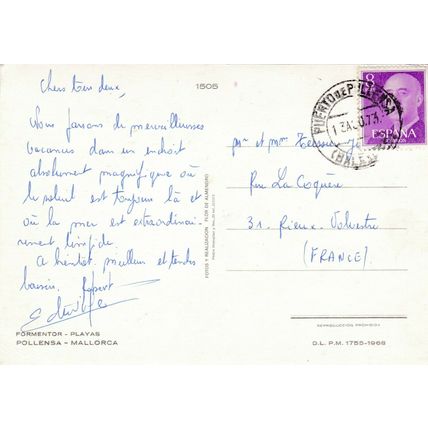 1505
Chers tous deux,
Nous faisons de merveilleuses
vacances dans un endroit
absolument magnifique où
le soleil est toujours là et
où la mer est extraordinai-
rement limpide.
A bientôt. meilleurs et tendres
baisers. Robert
FORMENTOR - PLAYAS
POLLENSA - MALLORCA
FOTOS Y REALIZACION FLOR DE ALMENDRO
8
ESPAÑA
PUERTO DE POLLENSA
13 AGO. 73
(BALEARES)
Mr et Mme
Rue La Coquère
31. Rieux Volvestre
(FRANCE)
REPRODUCCION PROHIBIDA
D.L. P.M. 1755-1968